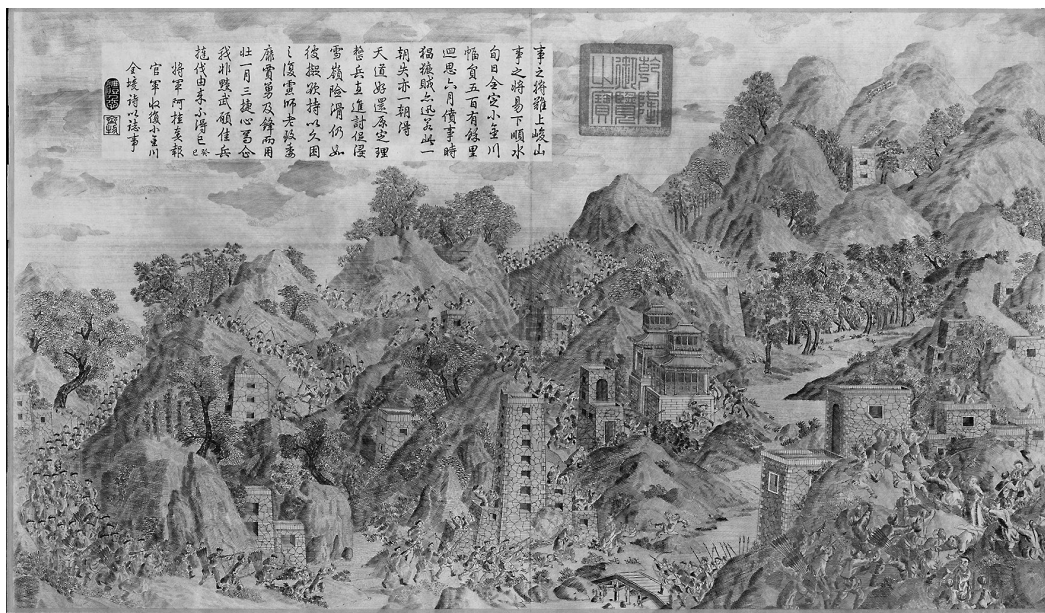 乾隆
御覽
之寶
事之将難上峻山
事之将易下順水
旬日全定小金川
幅員五百有餘里
迴思六月僨事時
猖獗賊亦迅若此一
朝失亦一朝得
天道好還原定理
整兵直進討促浸
雪嶺險滑仍如
彼擬欲持以久困
之復慮師老致委
靡賈勇及鋒而用
壯一月三捷心焉企
我非黷武顧佳兵
撻伐由来不得已 癸巳
将軍阿桂奏報
官軍收復小金川
全境詩以誌事